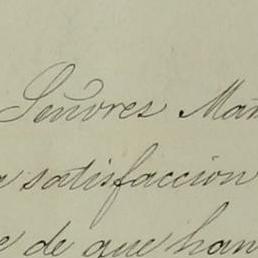 Señores Man
satisfaccion
de que han